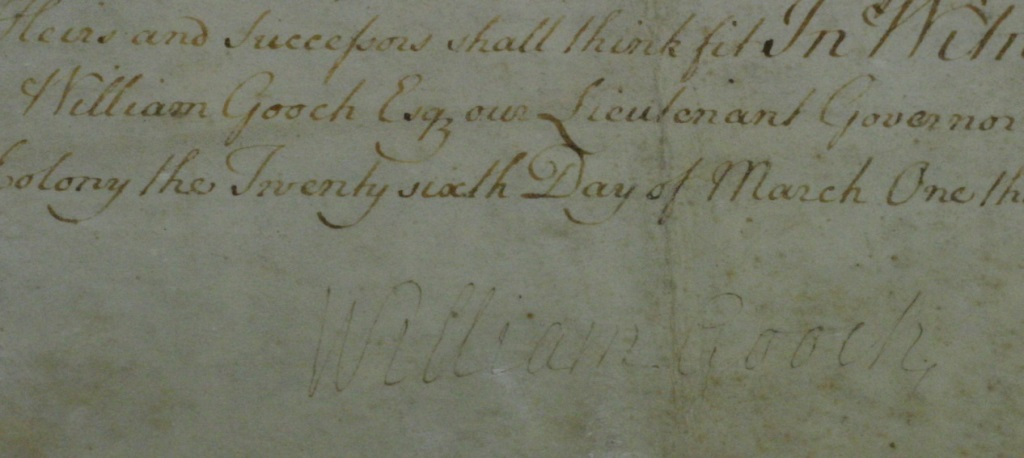 Heirs and Successors shall think fit In Witn
William Gooch Esqr our Lieutenant Governor
Colony the Twenty sixth Day of March One th
William Gooch